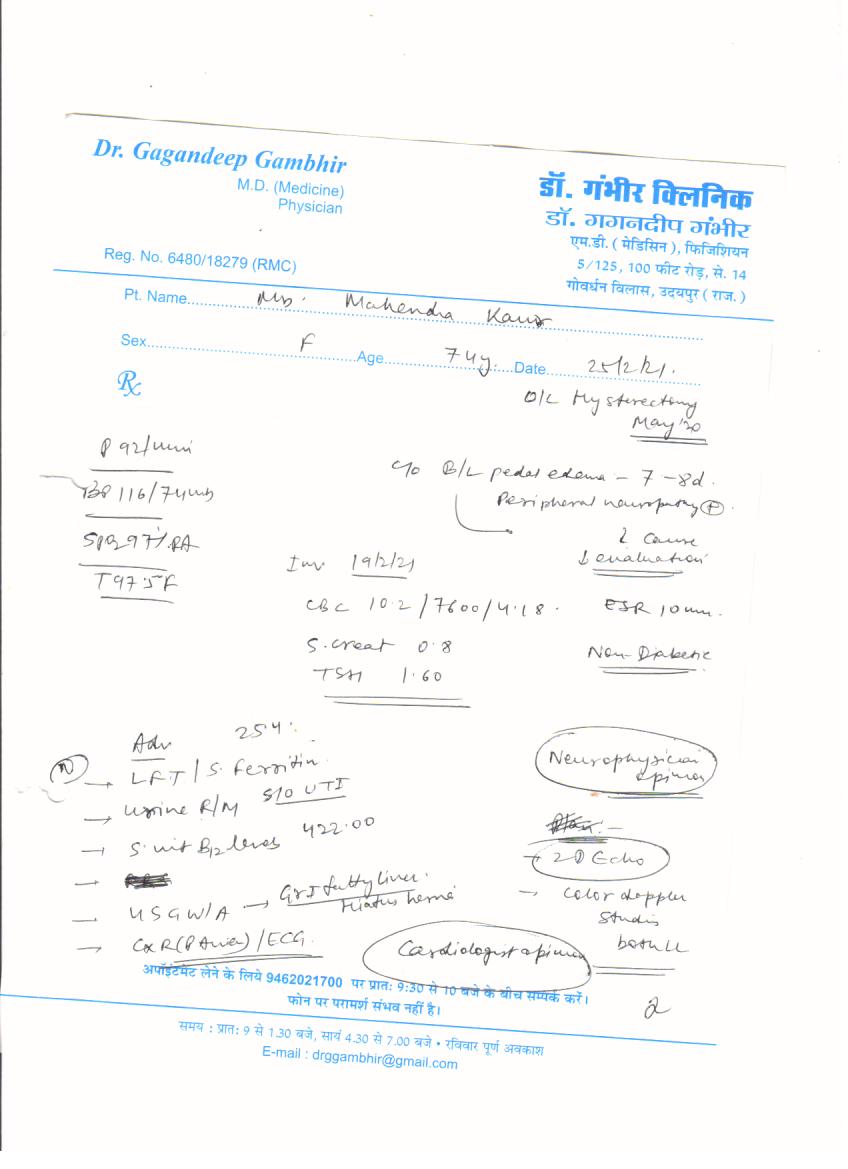 Dr. Gagandeep Gambhir
M.D. (Medicine)
Physician
Reg. No. 6480/18279 (RMC)
डॉ. गंभीर क्लिनिक
डॉ. गगनदीप गंभीर
एम.डी. ( मेडिसिन ), फिजिशियन
5/125, 100 फीट रोड़, से. 14
गोवर्धन विलास, उदयपुर ( राज. )
Pt. Name Mrs. Mahendra Kaur
Sex F Age 74y. Date 25/2/21.
Rx
O/L Hysterectomy
May'20
P 92/min
BP 116/74
SPO2 97%RA
T 97.5F
C/o B/L pedal edema - 7-8d.
Peripheral neuropathy +
? Cause
↓ evaluation
Inv 19/2/21
CBC 10.2/7600/4.18. ESR 10mm.
S. Creat 0.8
Non-Diabetic
TSH 1.60
Adv 254
N → LFT / S. Ferritin
→ Urine R/M S/O UTI
→ S. Vit B12 levels 422.00
→ USG W/A → Gr I fatty liver.
Hiatus hernia
→ CXR (PA view) / ECG.
Neurophysician opinion
→ 2D Echo
→ Color doppler
studies
both LL
Cardiologist opinion
2
अपॉइंटमेंट लेने के लिये 9462021700 पर प्रातः 9:30 से 10 बजे के बीच सम्पर्क करें।
फोन पर परामर्श संभव नहीं है।
समय : प्रातः 9 से 1.30 बजे, सायं 4.30 से 7.00 बजे • रविवार पूर्ण अवकाश
E-mail : drggambhir@gmail.com